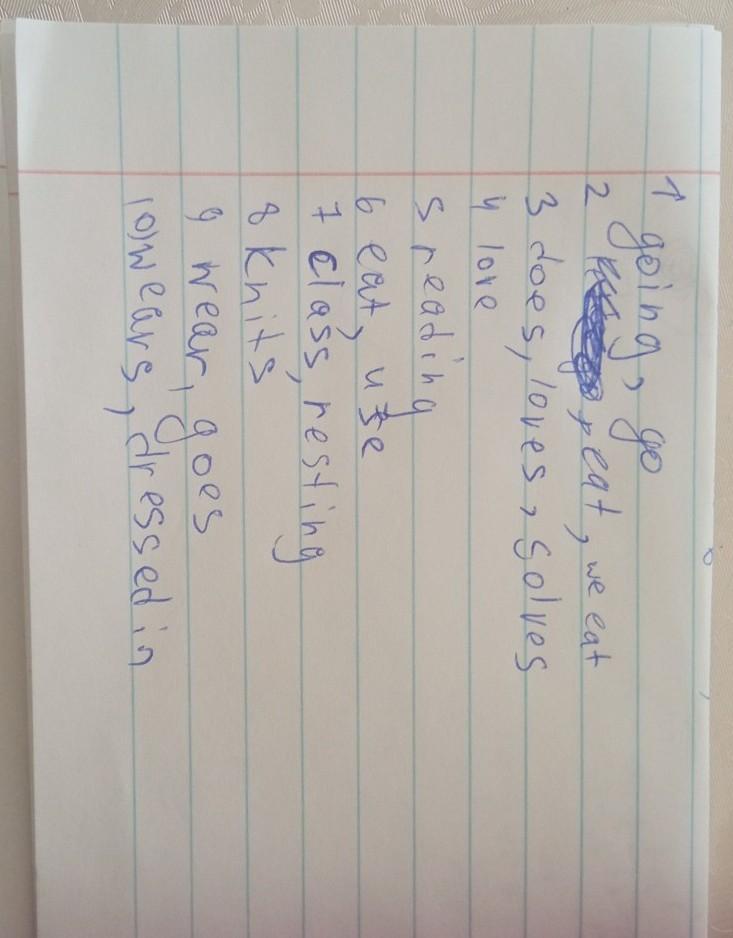 1 going, go
2 , eat, we eat
3 does, loves, solves
4 love
5 reading
6 eat, use
7 class, resting
8 knits
9 wear, goes
10) wears, dressed in